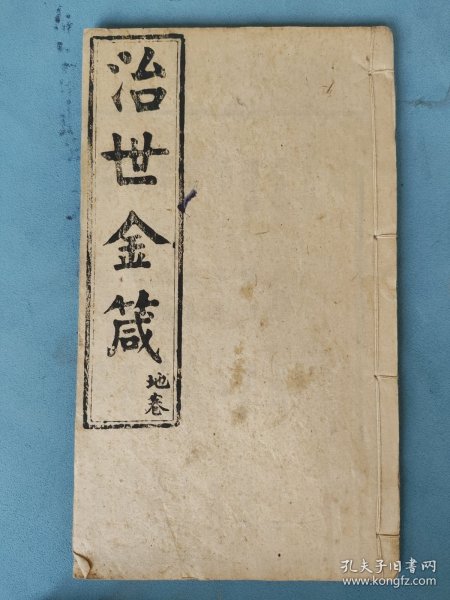 治世金箴
地卷
孔夫子旧书网
www.kongfz.com